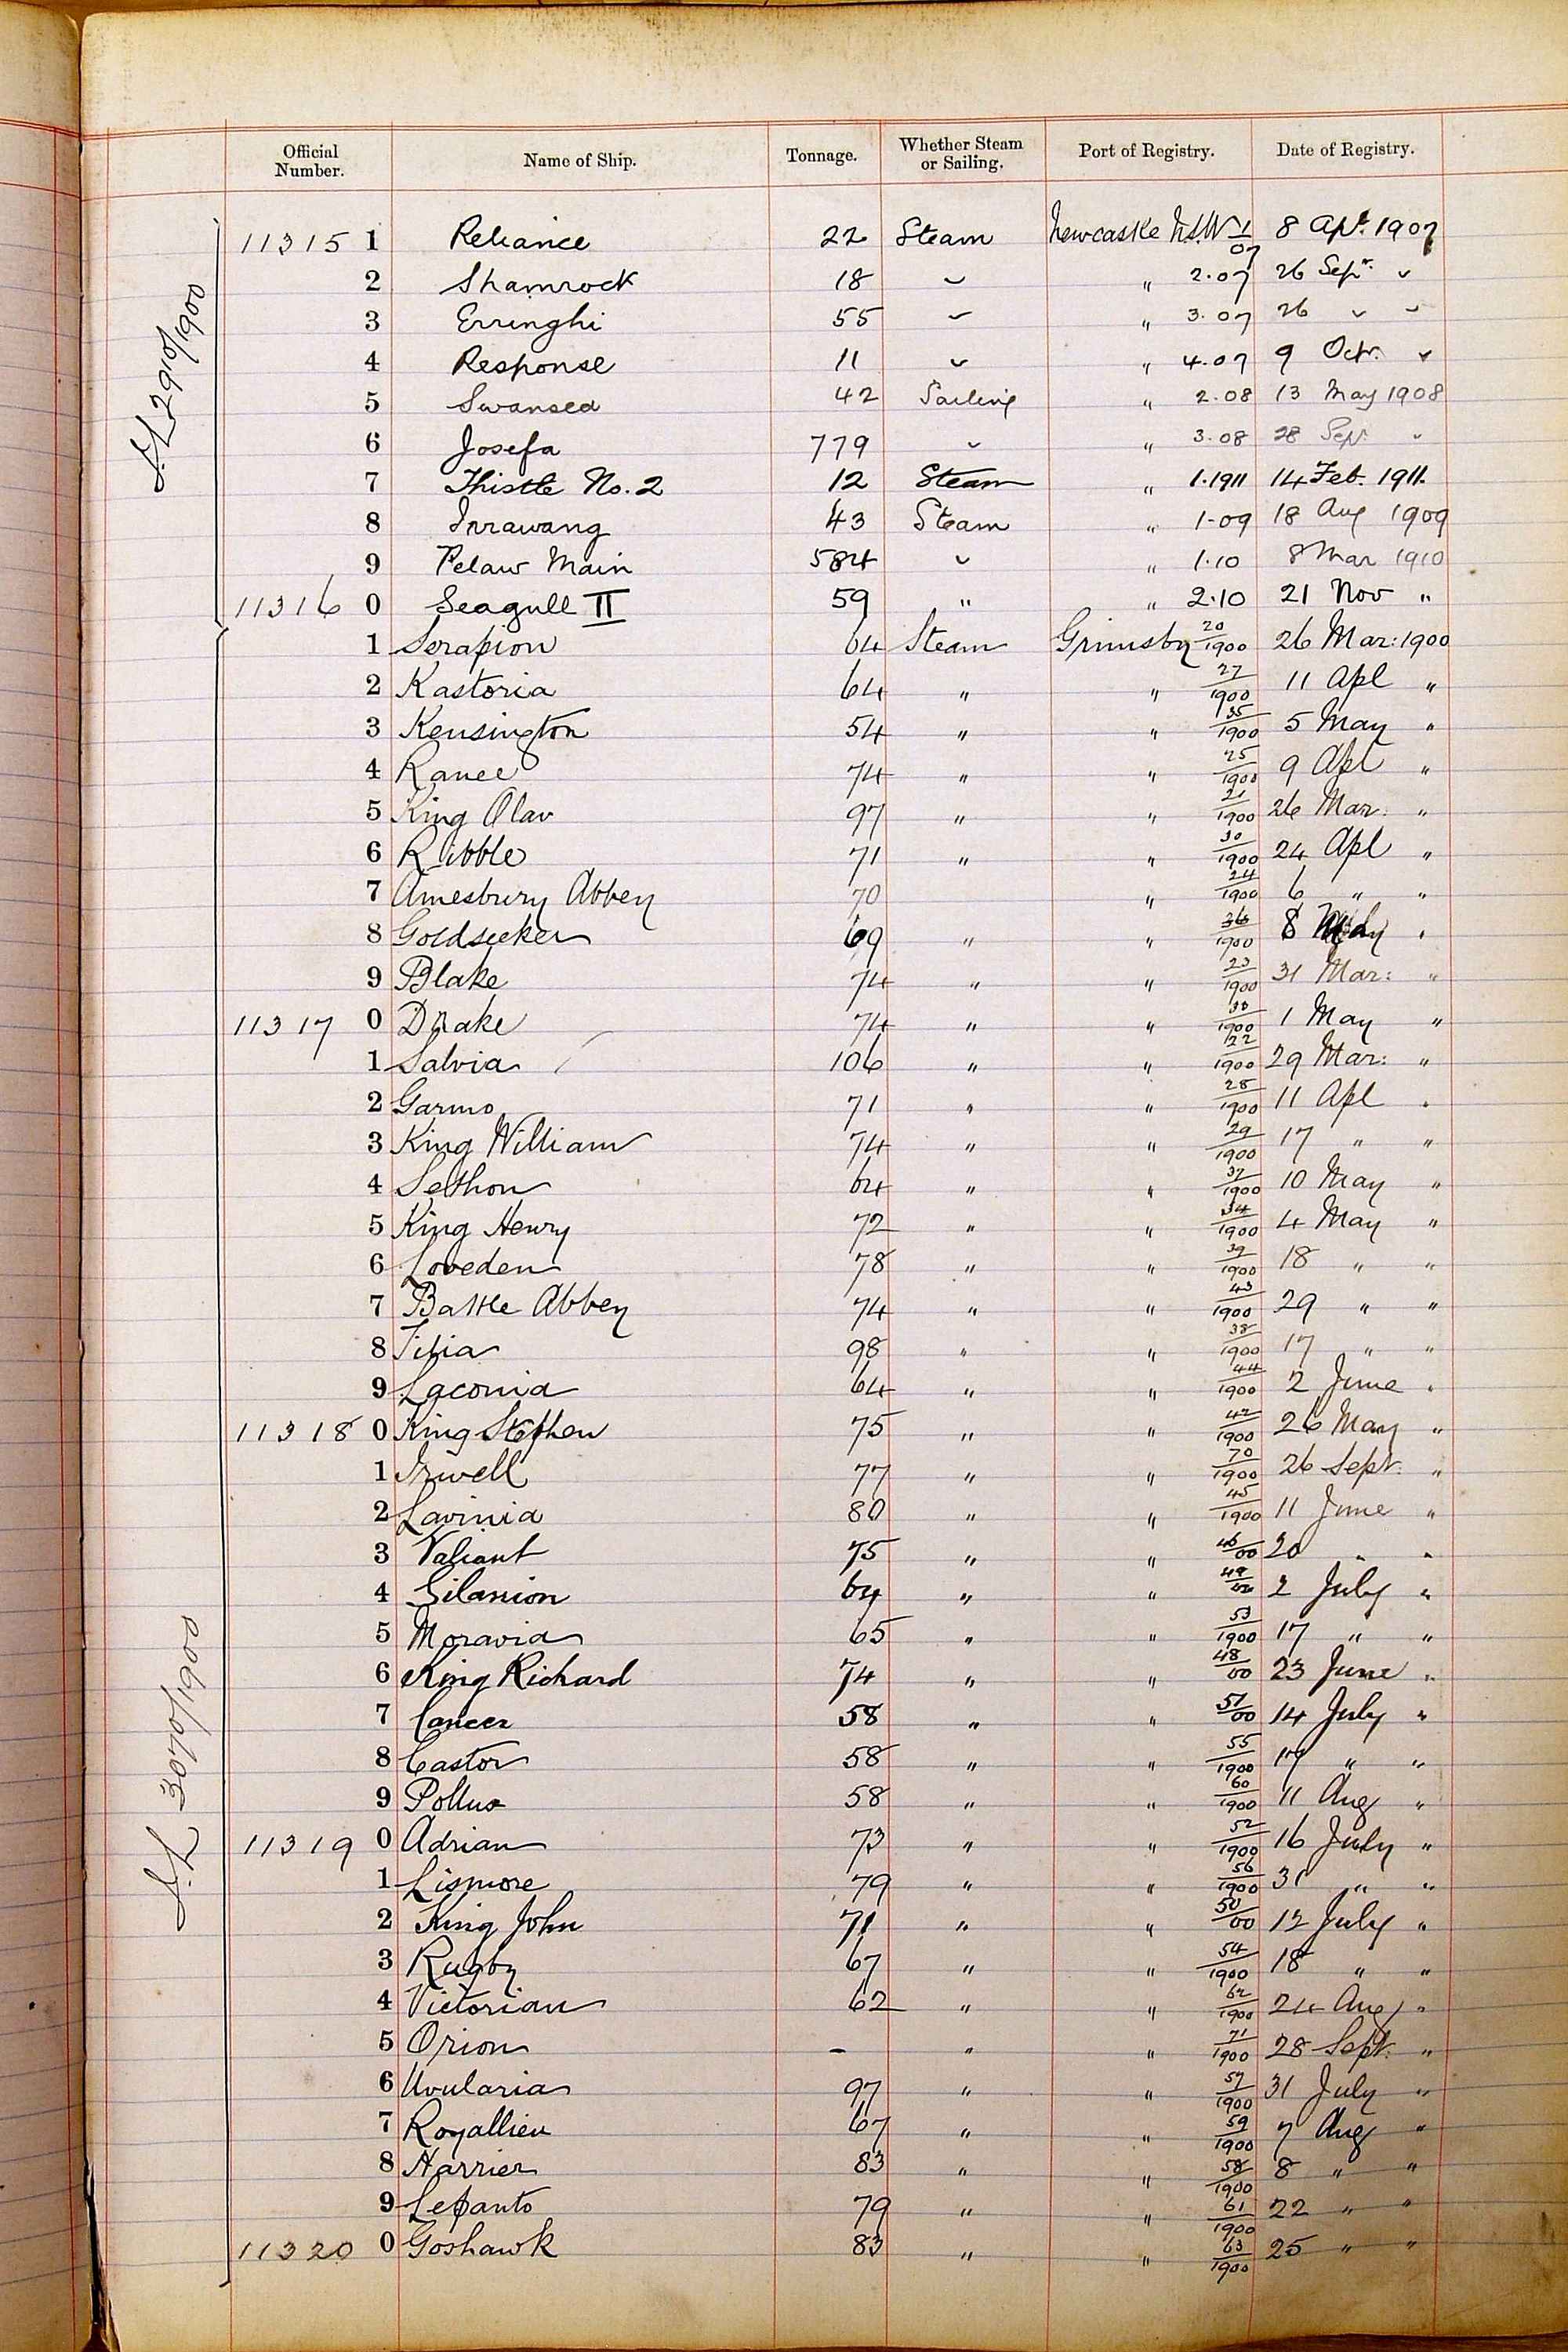 Official Number. Name of Ship. Tonnage. Whether Steam or Sailing. Port of Registry. Date of Registry.
11315 1 Reliance 22 Steam Newcastle N.S.W 1/07 8 Apl. 1907
2 Shamrock 18 " " 2.07 26 Sepr. "
3 Erringhi 55 " " 3.07 26 " "
4 Response 11 " " 4.07 9 Octr. "
5 Swansea 42 Sailing " 2.08 13 May 1908
6 Josefa 779 " " 3.08 28 Sepr "
7 Thistle No. 2 12 Steam " 1.1911 14 Feb. 1911.
8 Irrawang 43 Steam " 1-09 18 Aug 1909
9 Pelaw Main 584 " " 1.10 8 Mar 1910
11316 0 Seagull II 59 " " 2.10 21 Nov "
1 Serapion 64 Steam Grimsby 20/1900 26 Mar: 1900
2 Kastoria 64 " " 27/1900 11 Apl "
3 Kensington 54 " " 35/1900 5 May "
4 Ranee 74 " " 25/1900 9 Apl "
5 King Olav 97 " " 21/1900 26 Mar: "
6 Ribble 71 " " 30/1900 24 Apl "
7 Amesbury Abbey 70 " 24/1900 6 " "
8 Goldseeker 69 " " 36/1900 8 May "
9 Blake 74 " " 23/1900 31 Mar: "
11317 0 Drake 74 " " /1900 1 May "
1 Salvia 106 " " 22/1900 29 Mar: "
2 Garmo 71 " " 28/1900 11 Apl "
3 King William 74 " " 29/1900 17 " "
4 Sethon 64 " " 37/1900 10 May "
5 King Henry 72 " " 34/1900 4 May "
6 Loveden 78 " " 39/1900 18 " "
7 Battle Abbey 74 " " 43/1900 29 " "
8 Tilia 98 " " 38/1900 17 " "
9 Laconia 64 " " 44/1900 2 June "
11318 0 King Stephen 75 " " 42/1900 26 May "
1 Irwell 77 " " 70/1900 26 Sept. "
2 Lavinia 80 " " 45/1900 11 June "
3 Valiant 75 " " 46/00 20 " "
4 Silanion 64 " " 49/00 2 July "
5 Moravia 65 " " 53/1900 17 " "
6 King Richard 74 " " 48/00 23 June "
7 Cancer 58 " " 51/00 14 July "
8 Castor 58 " " 55/1900 19 " "
9 Pollux 58 " " 60/1900 11 Aug "
11319 0 Adrian 73 " " 52/1900 16 July "
1 Lismore 79 " " 56/1900 31 " "
2 King John 71 " " 50/00 12 July "
3 Rugby 67 " " 54/1900 18 " "
4 Victorian 62 " " 62/1900 24 Aug "
5 Orion - " " 71/1900 28 Sept. "
6 Uvularia 97 " " 57/1900 31 July "
7 Royallieu 67 " " 59/1900 7 Aug "
8 Harrier 83 " " 58/1900 8 " "
9 Lepanto 79 " " 61/1900 22 " "
11320 0 Goshawk 83 " " 63/1900 25 " "
2910/1900
3070/1900